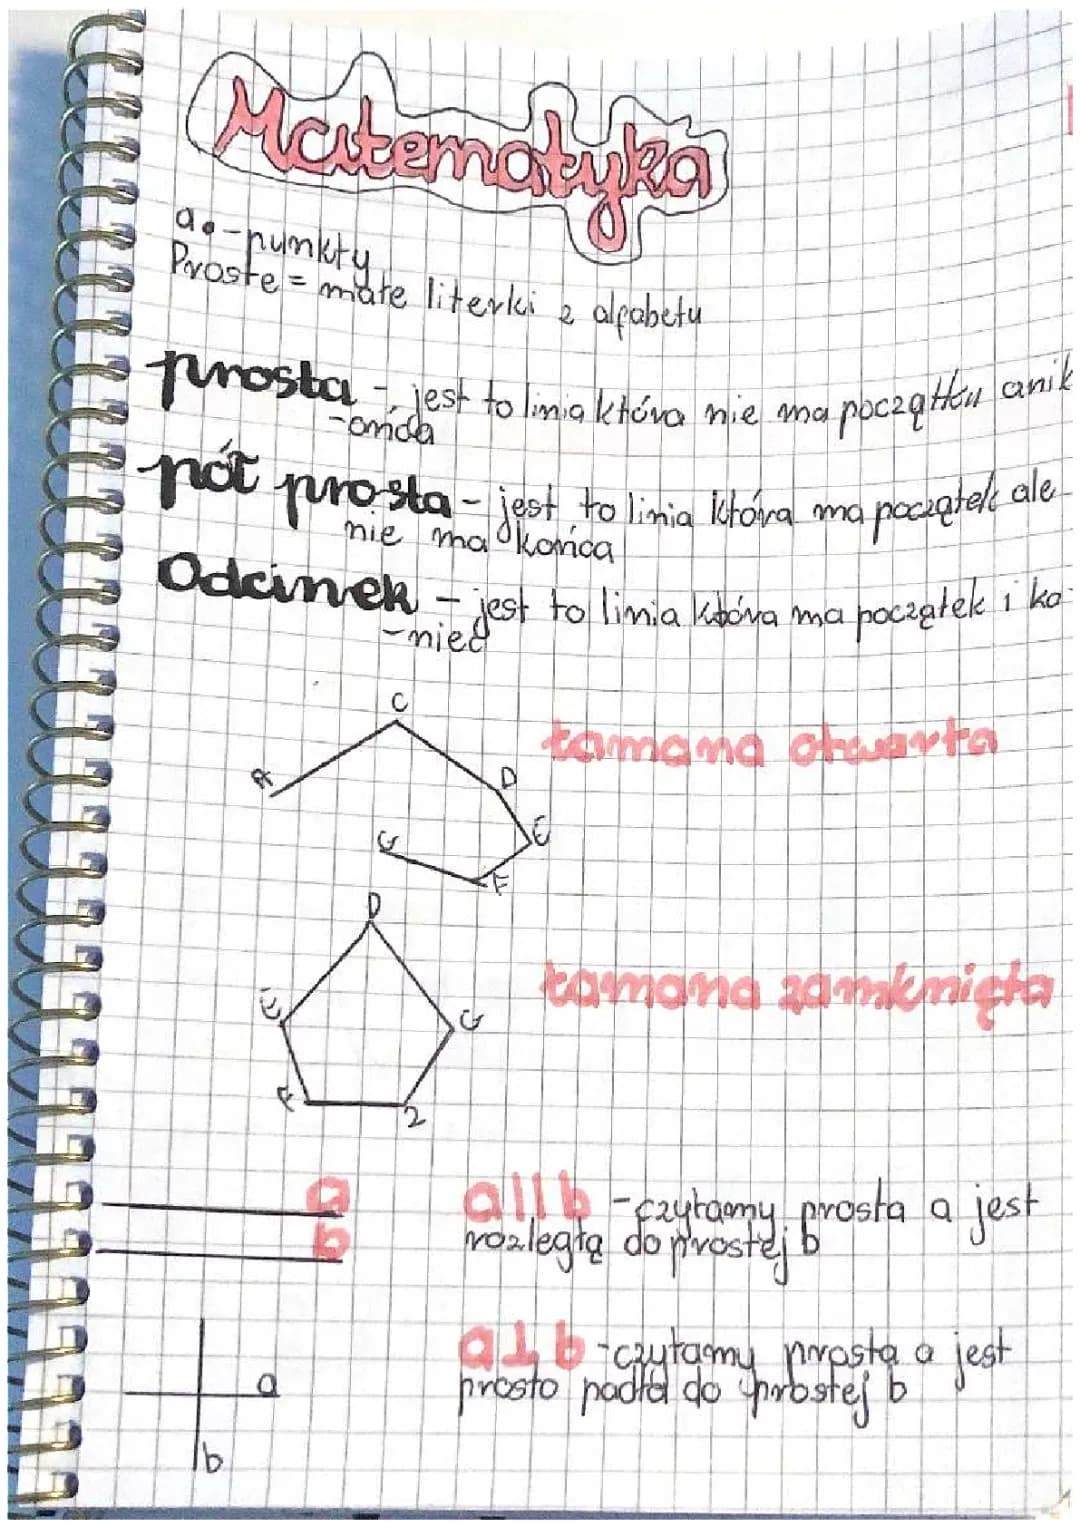 Matematyka
a. - punkty
Proste = małe literki z alfabetu
prosta - jest to linia która nie ma początku anik
-ońca
pół prosta - jest to linia która ma początek ale
nie ma końca
Odcinek - jest to linia która ma początek i ko-
-niec
C
łamana otwarta
A
D
E
G
F
D
łamana zamknięta
E
G
F
2
a
a || b - czytamy prosta a jest
b
rozległą do prostej b
a ⊥ b - czytamy prosta a jest
prosto padła do prostej b
a
b